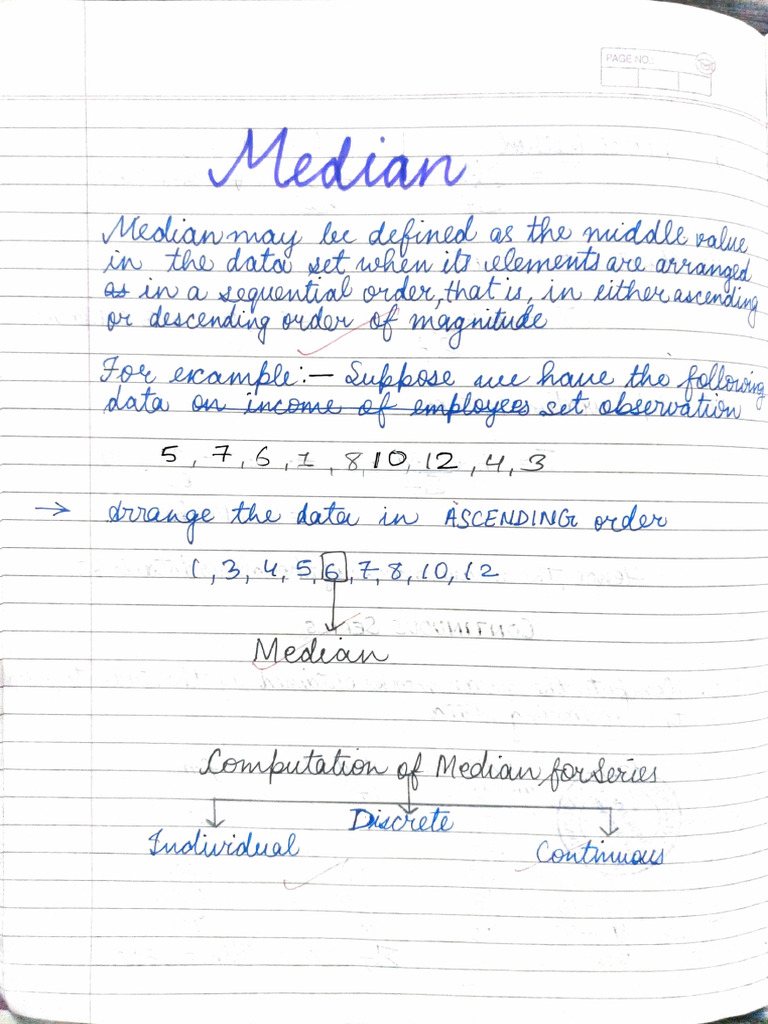 PAGE NO.:
Median
Median may be defined as the middle value
in the data set when its elements are arranged
as in a sequential order, that is, in either ascending
or descending order of magnitude
For example:— Suppose we have the following
data on income of employees set observation
5, 7, 6, 1, 8, 10, 12, 4, 3
→ Arrange the data in ASCENDING order
1, 3, 4, 5, 6, 7, 8, 10, 12
Median
Computation of Median for Series
Individual Discrete Continuous